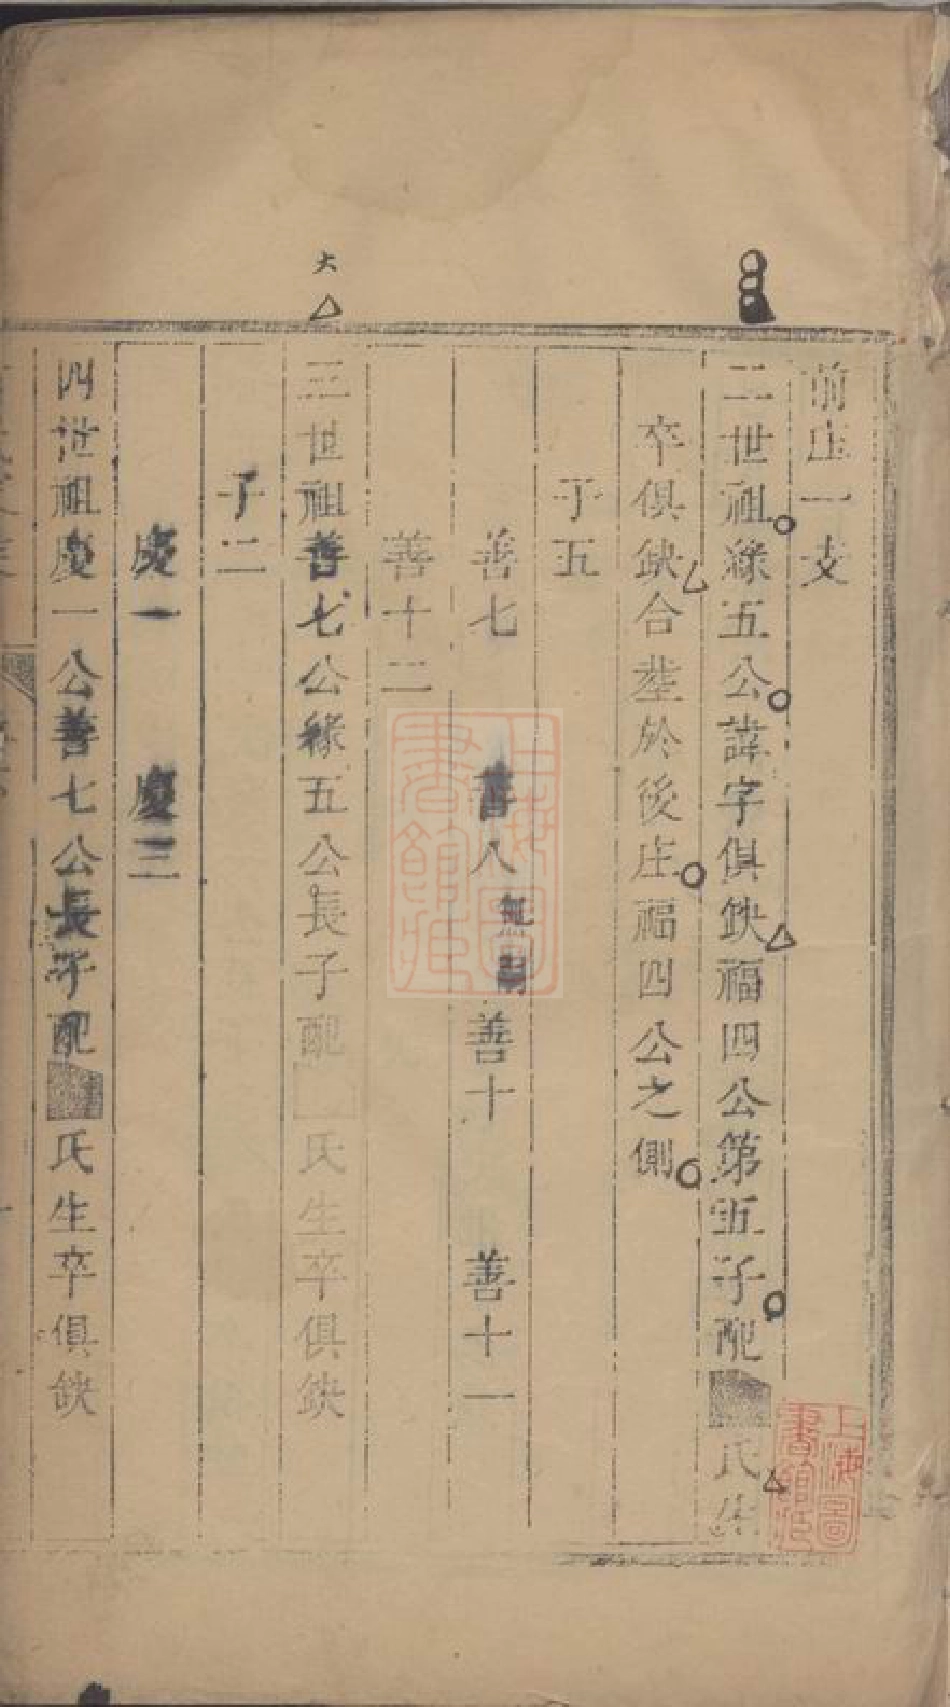 前庄一支
二世祖緣五公諱字俱缺福四公第五子配 氏生
卒俱缺合塟於後庄福四公之側
子五
善七 善八無嗣 善十 善十一
善十二
大
三世祖善七公緣五公長子配 氏生卒俱缺
子二
慶一 慶三
四世祖慶一公善七公長子配 氏生卒俱缺
上海圖書館藏
上海圖書館藏